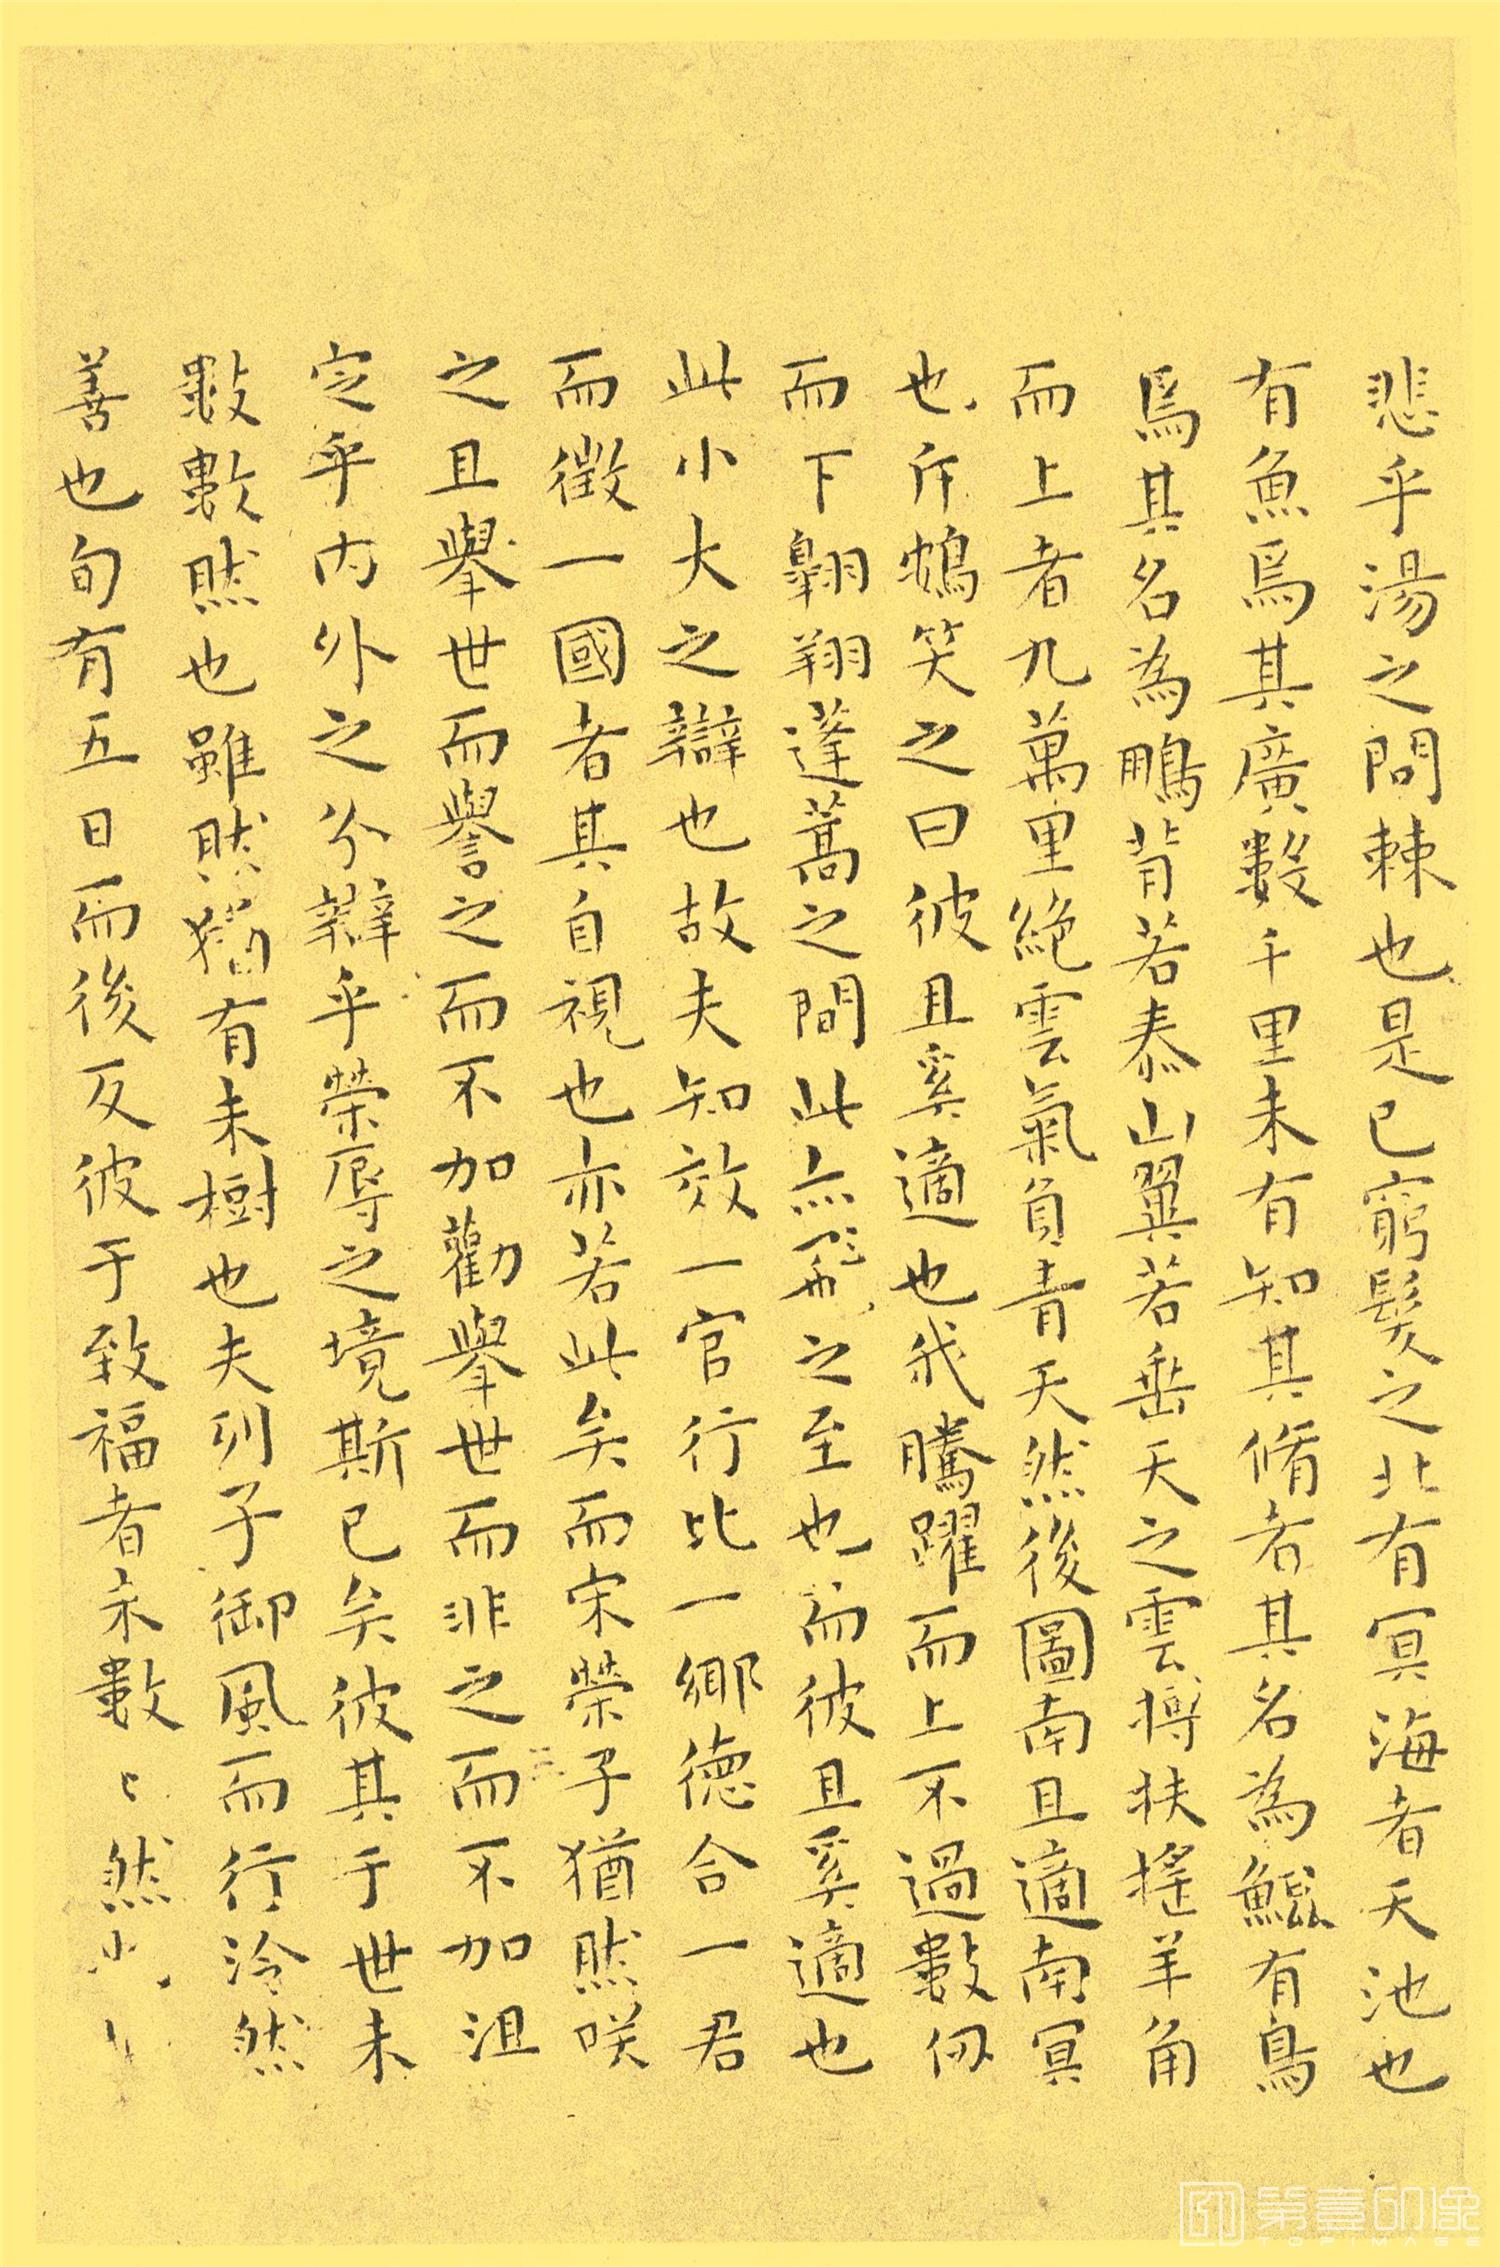 悲乎湯之問棘也是已窮髮之北有冥海者天池也
有魚焉其廣數千里未有知其脩者其名為鯤有鳥
焉其名為鵬背若泰山翼若垂天之雲摶扶搖羊角
而上者九萬里絕雲氣負青天然後圖南且適南冥
也斥鴳笑之曰彼且奚適也我騰躍而上不過數仞
而下翱翔蓬蒿之間此亦飛之至也而彼且奚適也
此小大之辯也故夫知效一官行比一鄉德合一君
而徵一國者其自視也亦若此矣而宋榮子猶然咲
之且舉世而譽之而不加勸舉世而非之而不加沮
定乎內外之分辯乎榮辱之境斯已矣彼其于世未
數數然也雖然猶有未樹也夫列子御風而行泠然
善也旬有五日而後反彼于致福者未數〻然
第壹印像
TOPIMAGE